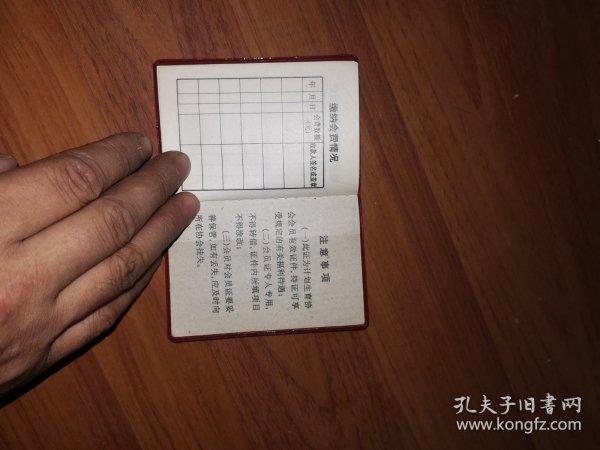 缴纳会费情况
年 月 日 会费数额(元) 收款人签名或盖章
注意事项
(一)此证为计划生育协
会会员有效证件,持证可享
受规定的有关福利待遇;
(二)会员证专人专用,
不得转借,证件内所填项目
不得涂改;
(三)会员对会员证要妥
善保管,如有丢失,应及时向
所在协会挂失。
孔夫子旧书网
www.kongfz.com